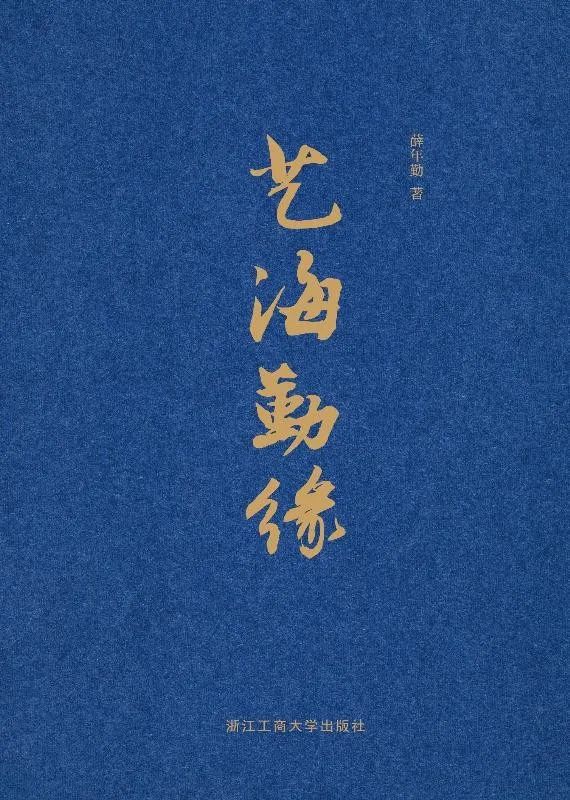 艺海勤缘
薛年勤 著
浙江工商大学出版社